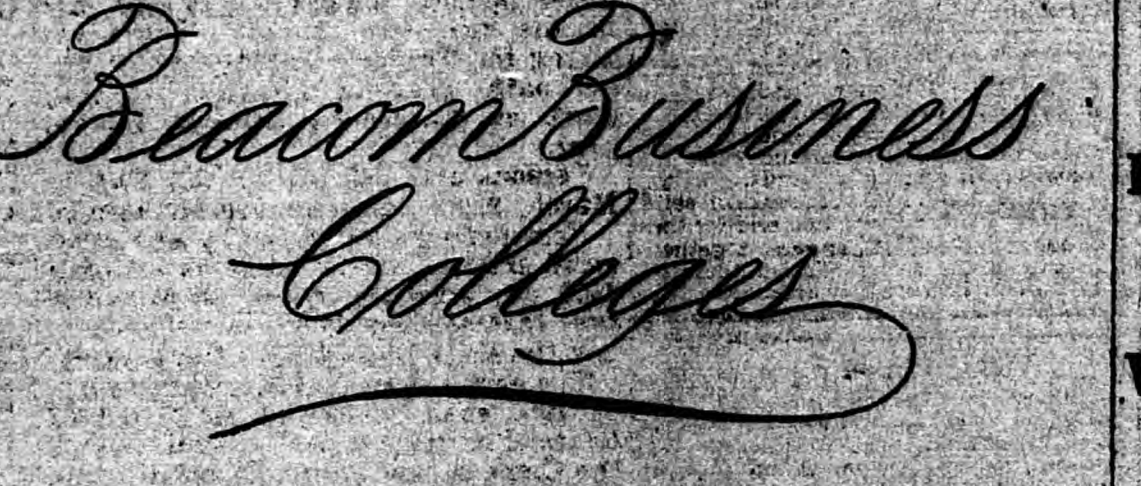 Beacom Business
Colleges